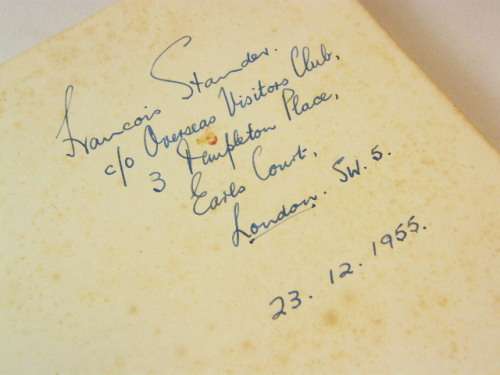 Francois Stander.
c/o Overseas Visitors Club,
3 Templeton Place,
Earls Court,
London. SW. 5.
23. 12. 1955.